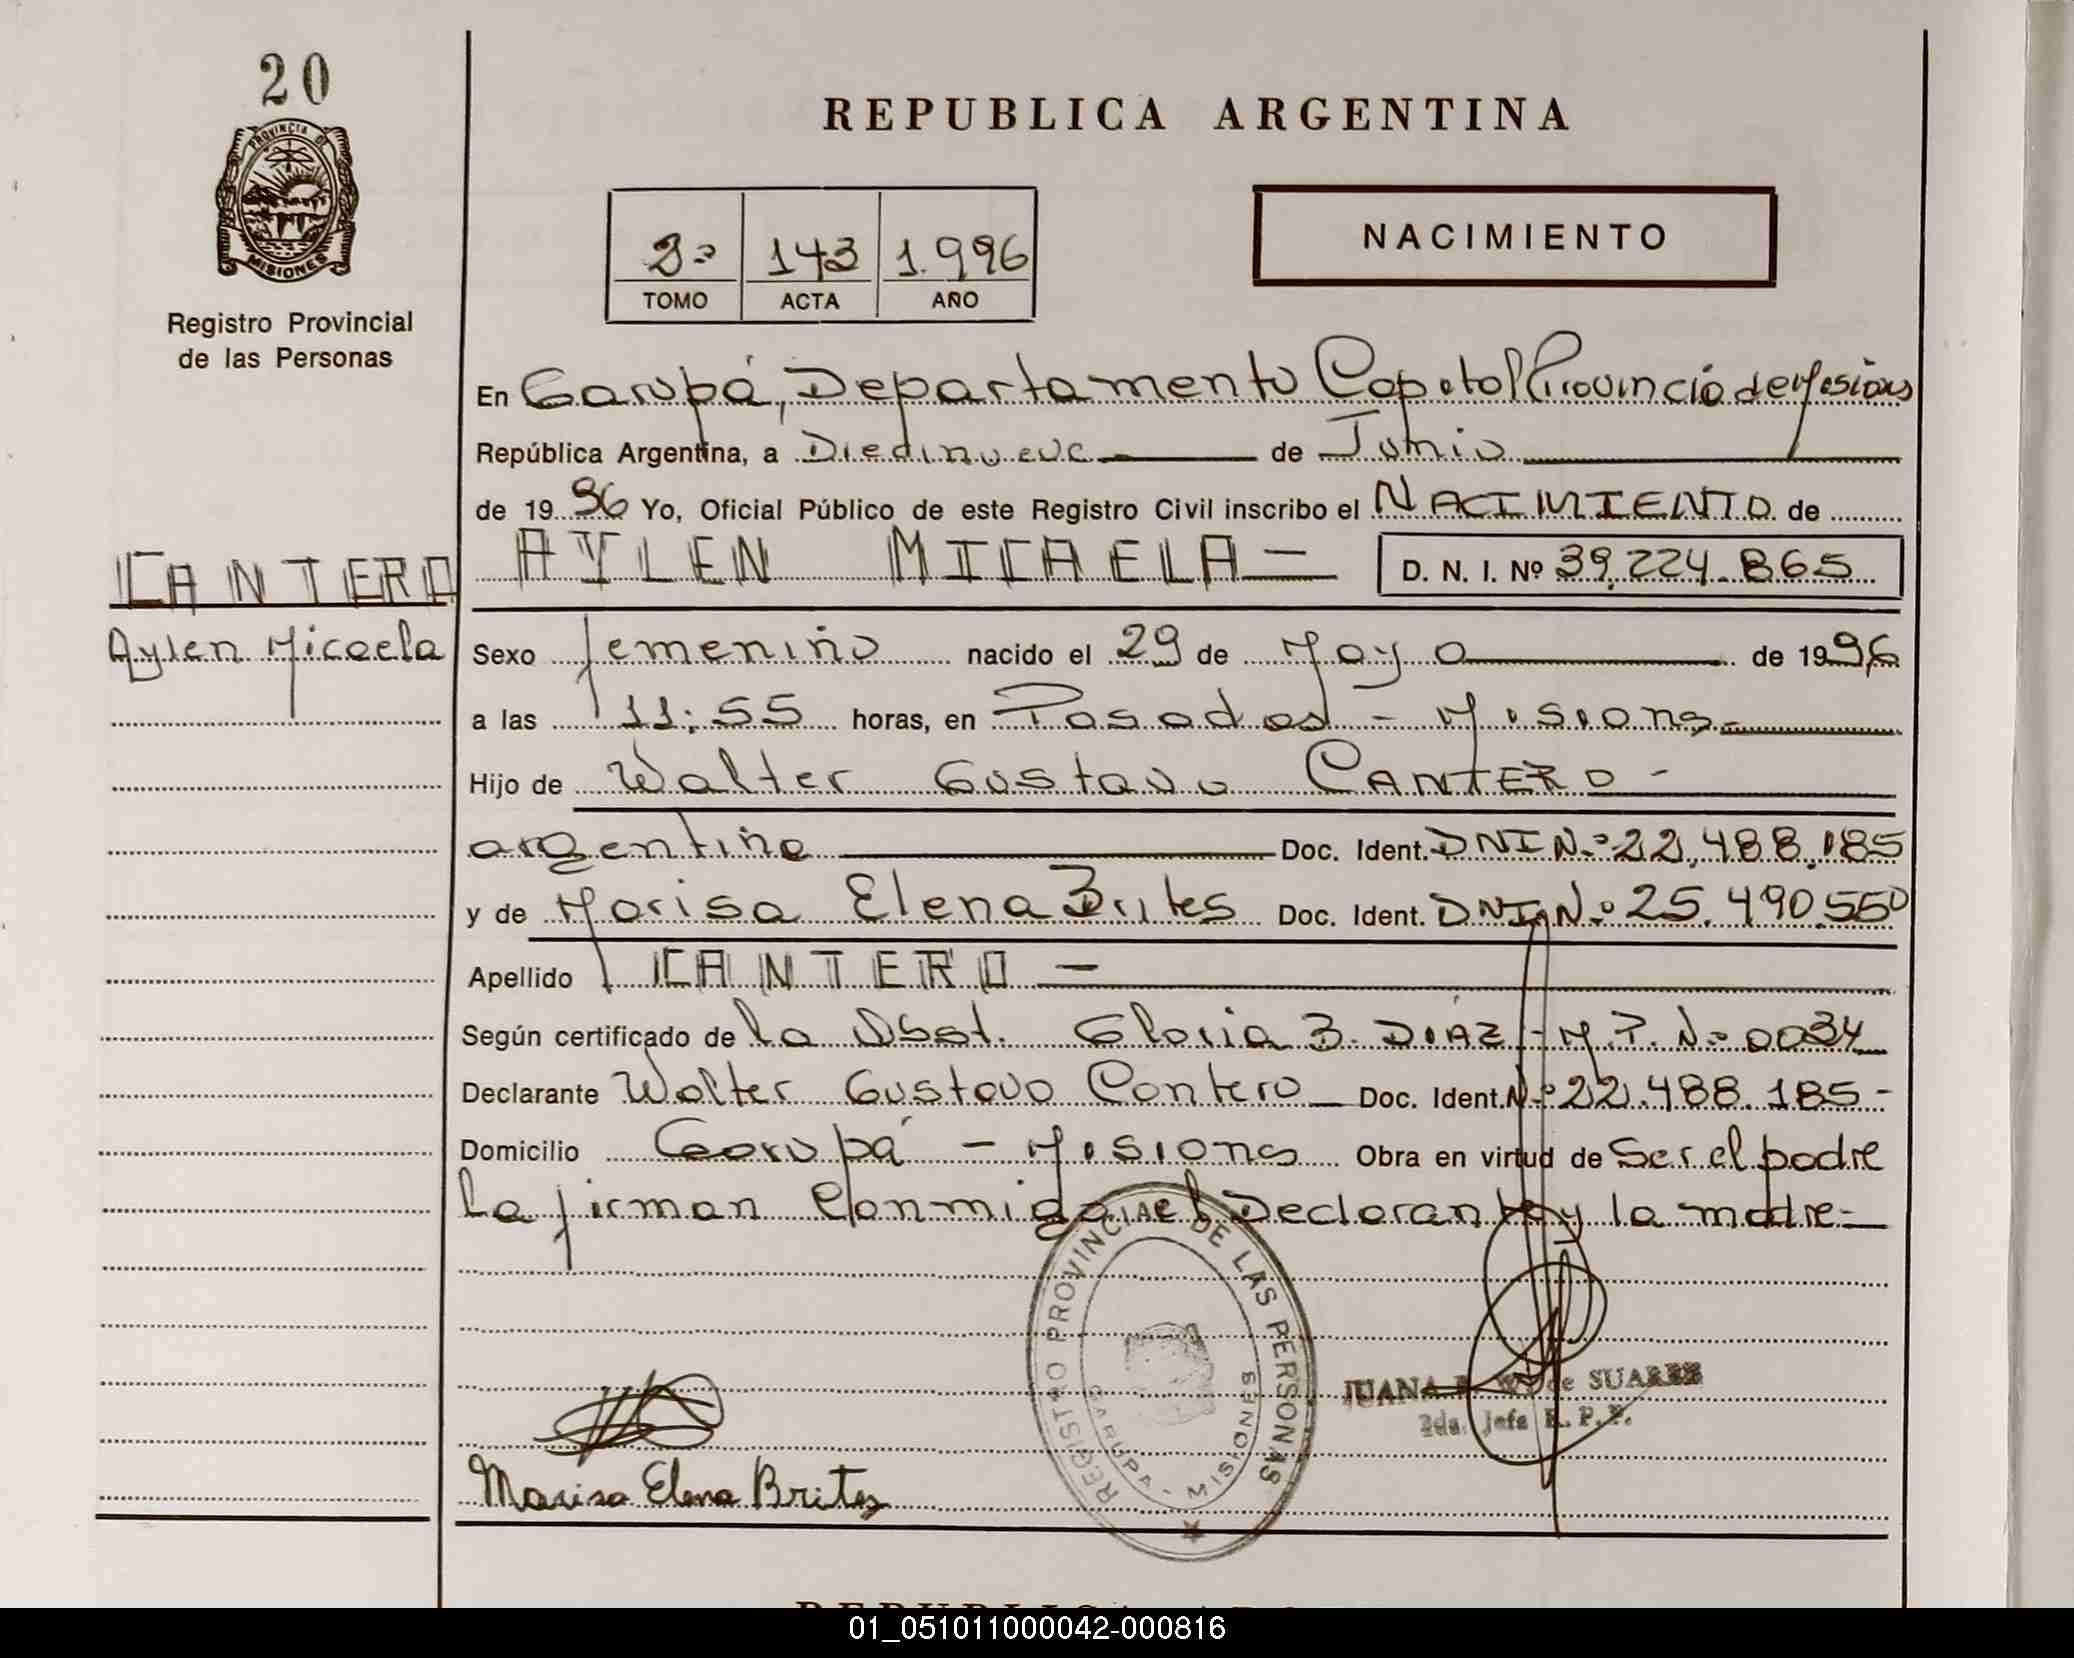 20
PROVINCIA DE
MISIONES
Registro Provincial
de las Personas
REPUBLICA ARGENTINA
NACIMIENTO
143 1.996
TOMO ACTA AÑO
En Garupá, Departamento Capital Provincia de Misiones
República Argentina, a Diecinueve de Junio
de 19 96 Yo, Oficial Público de este Registro Civil inscribo el NACIMIENTO de
CANTERO AYLEN MICAELA — D. N. I. Nº 39.224.865
Aylen Micaela
Sexo femenino nacido el 29 de Mayo de 1996
a las 11:55 horas, en Posadas - Misiones
Hijo de Walter Gustavo CANTERO -
argentino Doc. Ident. DNI Nº 22.488.185
y de Marisa Elena Brites Doc. Ident. DNI Nº 25.490.550
Apellido CANTERO —
Según certificado de la Obst. Gloria B. DÍAZ - M.P. Nº 0034
Declarante Walter Gustavo Cantero Doc. Ident. Nº 22.488.185-
Domicilio Garupá - Misiones Obra en virtud de Ser el padre
La firman Conmigo el Declarante y la madre-
REGISTRO PROVINCIAL DE LAS PERSONAS
GARUPA - MISIONES
JUANA de SUAREZ
2da. Jefa R. P. P.
Marisa Elena Brites
01_051011000042-000816